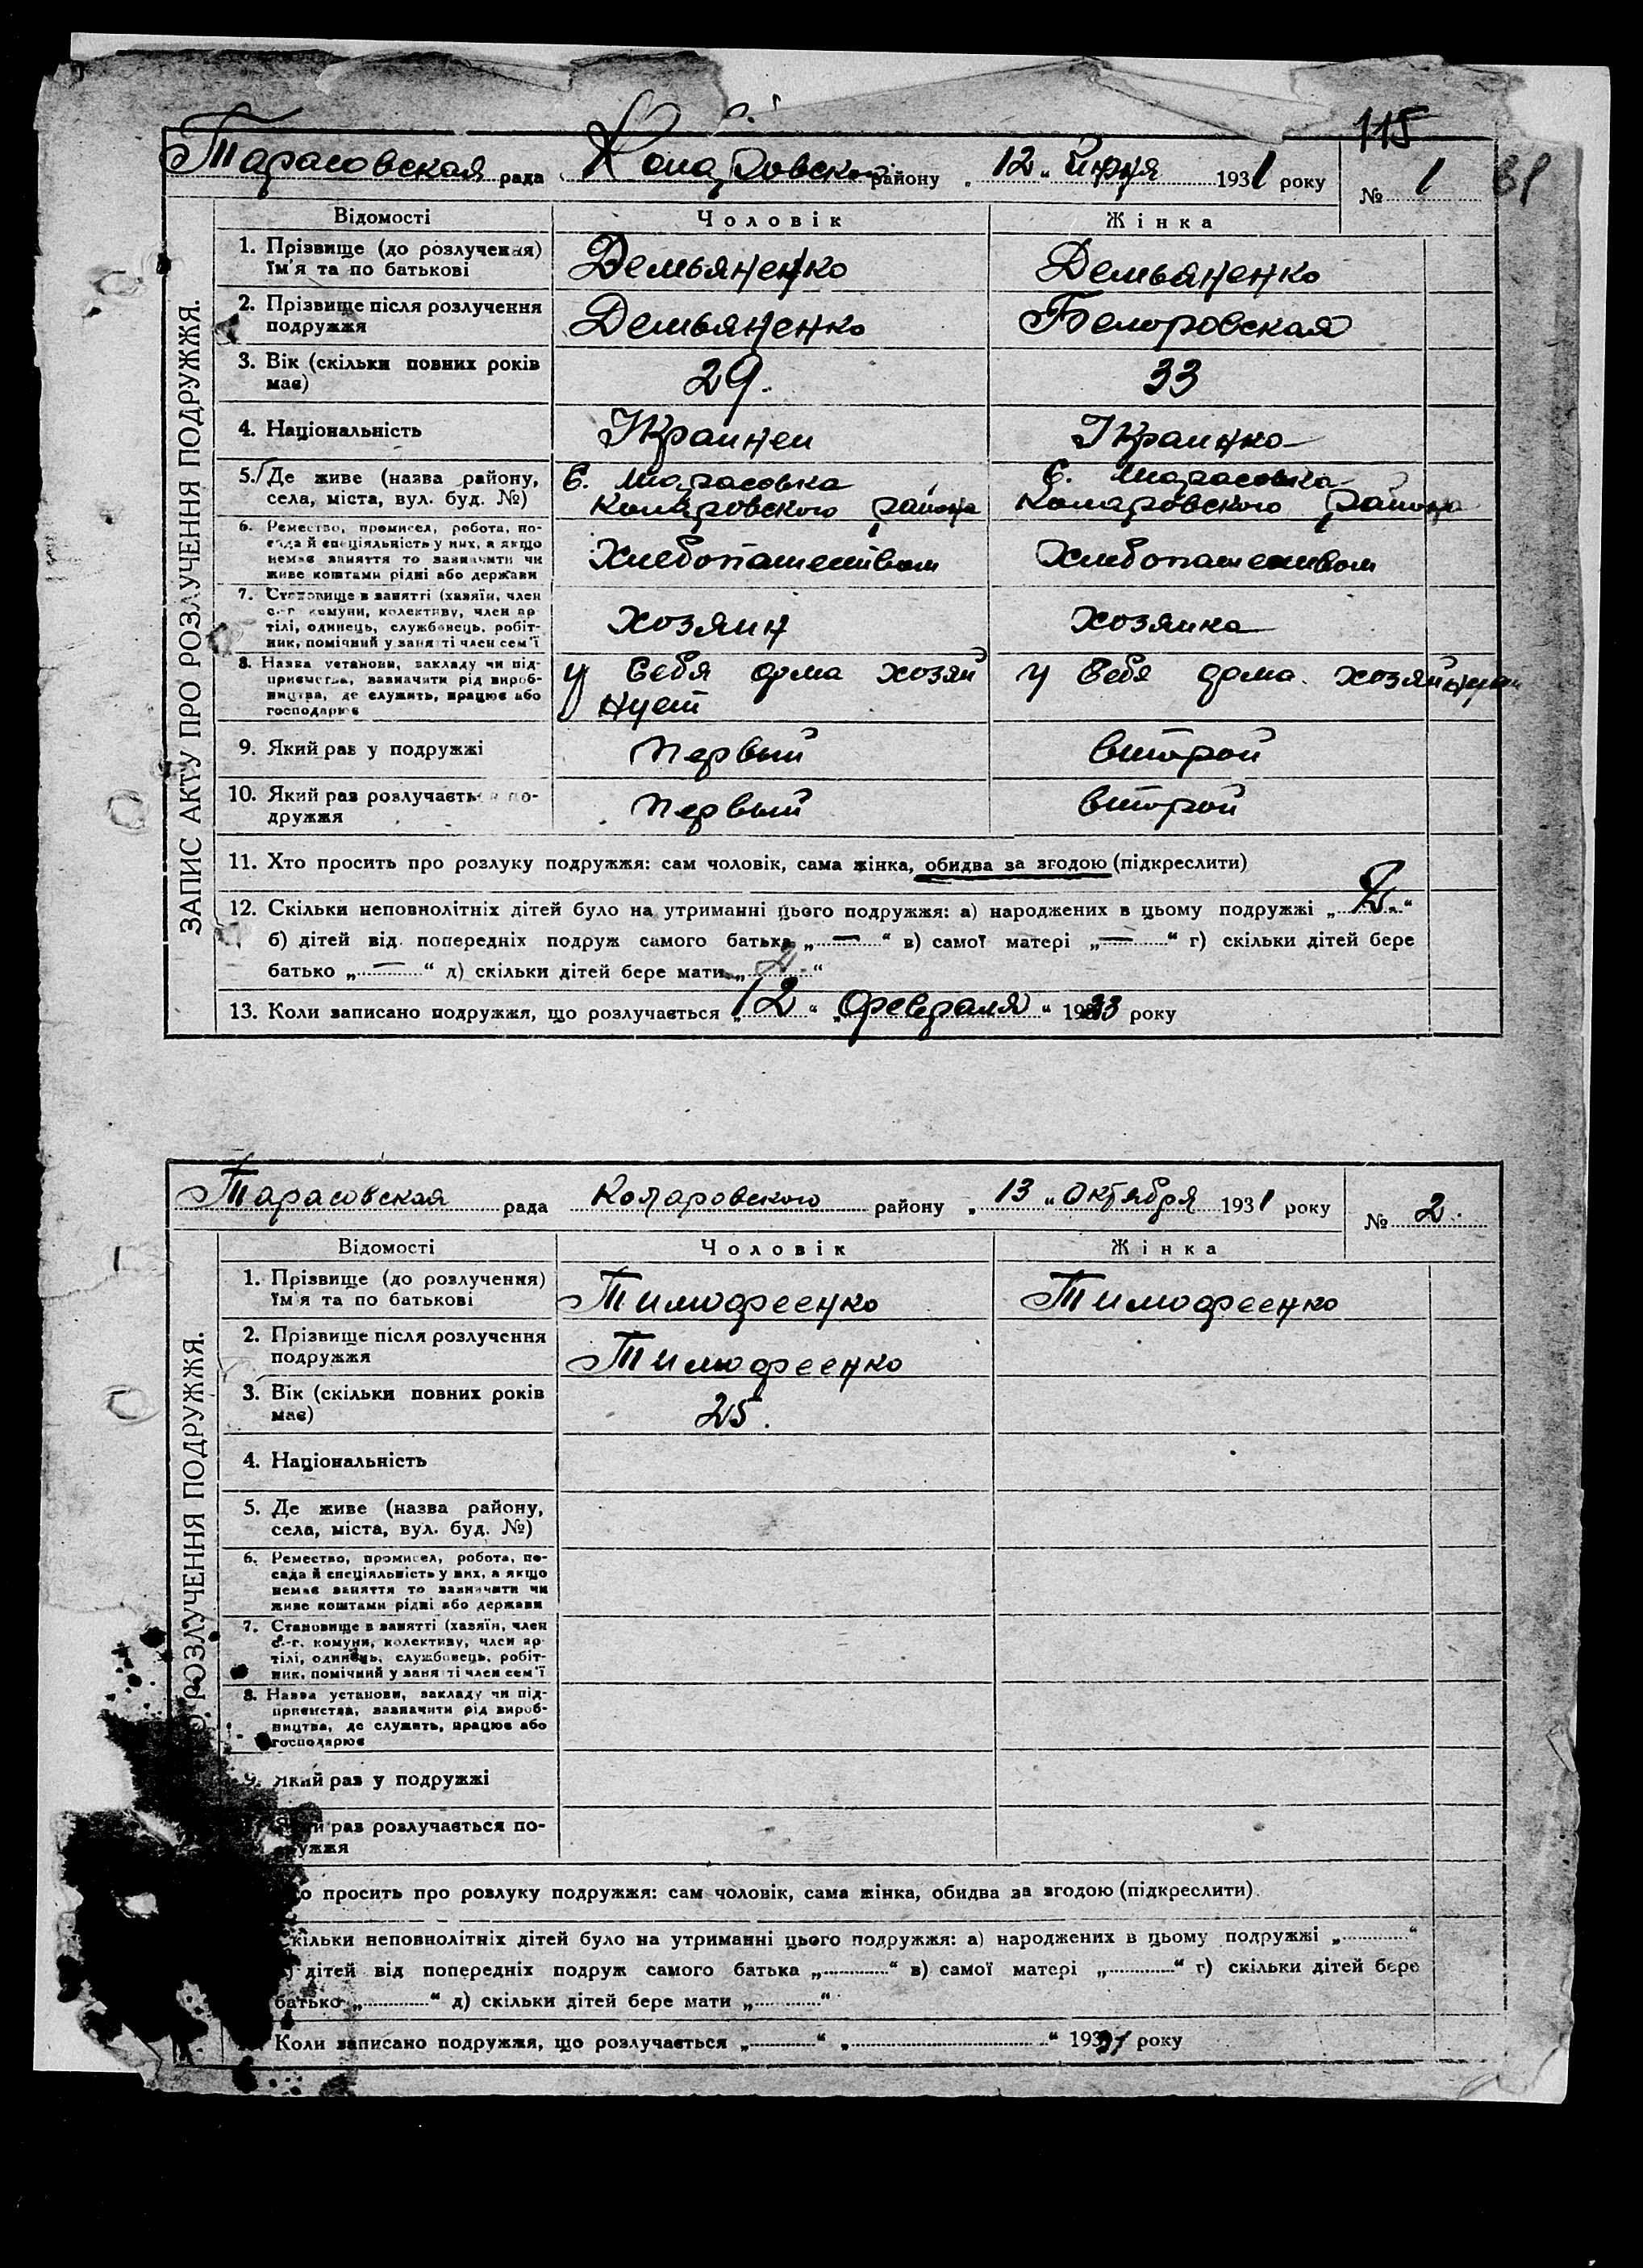 115
Тарасовская рада района району „12„ 1931 року № 1
Відомості Чоловік Жінка
ЗАПИС АКТУ ПРО РОЗЛУЧЕННЯ ПОДРУЖЖЯ.
1. Прізвище (до розлучення) Демьяненко Демьяненко
їм'я та по батькові
2. Прізвище після розлучення Демьяненко
подружжя
3. Вік (скільки повних років 29. 33
має)
4. Національність Украинец Украинка
5. Де живе (назва району, С. Тарасовка С. Тарасовка
села, міста, вул. буд. №) Коларовского района Коларовского района
6. Ремество, промисел, робота, по-
сада й спеціяльність у них, а якщо Хлебопашеством Хлебопашеством
немає заняття то зазначити чи
живе коштами рідні або держави
7. Становище в занятті (хазяїн, член
с.-г. комуни, колективу, член ар-
тілі, одинець, службовець, робіт- хозяин хозяика
ник, помічний у занятті член сем'ї
8. Назва установи, закладу чи під- у себя дома хозяй у себя дома. хозяйнует
приємства, зазначити рід вироб- нует
ництва, де служить, працює або
господарює
9. Який раз у подружжі первый второй
10. Який раз розлучається по- первый второй
дружжя
11. Хто просить про розлуку подружжя: сам чоловік, сама жінка, обидва за згодою (підкреслити)
12. Скільки неповнолітніх дітей було на утриманні цього подружжя: а) народжених в цьому подружжі „2.“
б) дітей від попередніх подруж самого батька „—“ в) самої матері „—“ г) скільки дітей бере
батько „—“ д) скільки дітей бере мати „2.“
13. Коли записано подружжя, що розлучається „12“ „февраля“ 1923 року
Тарасовская рада Коларовского району „13„ октября 1931 року № 2.
Відомості Чоловік Жінка
РОЗЛУЧЕННЯ ПОДРУЖЖЯ.
1. Прізвище (до розлучення) Тимофеенко Тимофеенко
їм'я та по батькові
2. Прізвище після розлучення
подружжя Тимофеенко
3. Вік (скільки повних років 25.
має)
4. Національність
5. Де живе (назва району,
села, міста, вул. буд. №)
6. Ремество, промисел, робота, по-
сада й спеціяльність у них, а якщо
немає заняття то зазначити чи
живе коштами рідні або держави
7. Становище в занятті (хазяїн, член
с.-г. комуни, колективу, член ар-
тілі, одинець, службовець, робіт-
ник, помічний у занятті член сем'ї
8. Назва установи, закладу чи під-
приємства, зазначити рід вироб-
ництва, де служить, працює або
господарює
9. Який раз у подружжі
Який раз розлучається по-
дружжя
просить про розлуку подружжя: сам чоловік, сама жінка, обидва за згодою (підкреслити).
Скільки неповнолітніх дітей було на утриманні цього подружжя: а) народжених в цьому подружжі „ “
дітей від попередніх подруж самого батька „ “ в) самої матері „ “ г) скільки дітей бере
батько „ “ д) скільки дітей бере мати „ “
Коли записано подружжя, що розлучається „ “ „ “ 1931 року